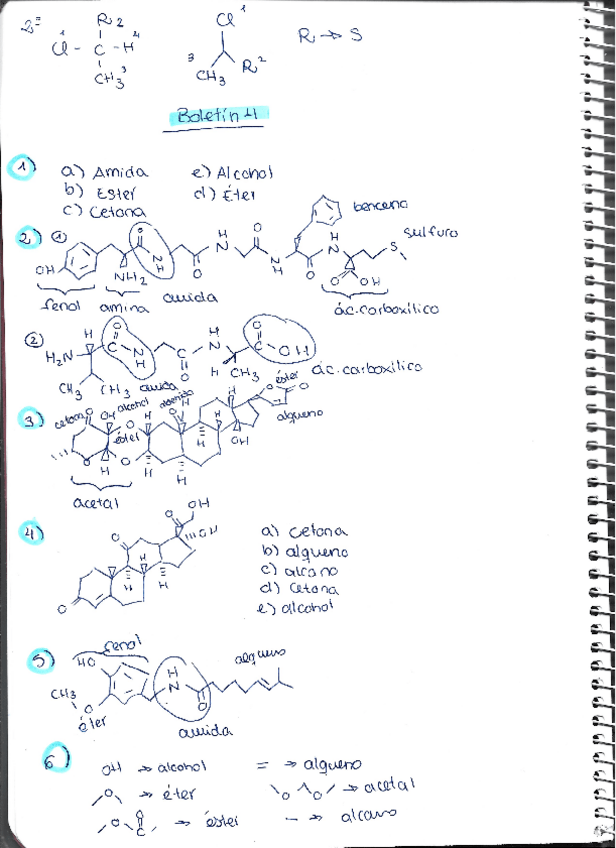 2=
R2
1 Cl - C - H 4
CH3 3
Cl 1
3 CH3 R2
R → S
Boletín 4
1) a) Amida e) Alcohol
b) Ester d) Éter
c) Cetona
2) ① O H N O H N O benceno
sulfuro
OH NH2 N H O N H O H N S
O OH
fenol amina amida ác. carboxílico
② H O H O
H2N C N H C O N H C OH
CH3 CH3 H CH3
amida ác. carboxílico
3) cetona OH alcohol éster
O H O H O O
éter alqueno
O H O H H H OH
acetal
4) O OH
O OH
H H H
O
a) Cetona
b) alqueno
c) alcano
d) Cetona
e) alcohol
5) fenol
HO H N alqueno
CH3 O O
éter amida
6) OH → alcohol = → alqueno
O → éter O O → acetal
O C O → éster — → alcano